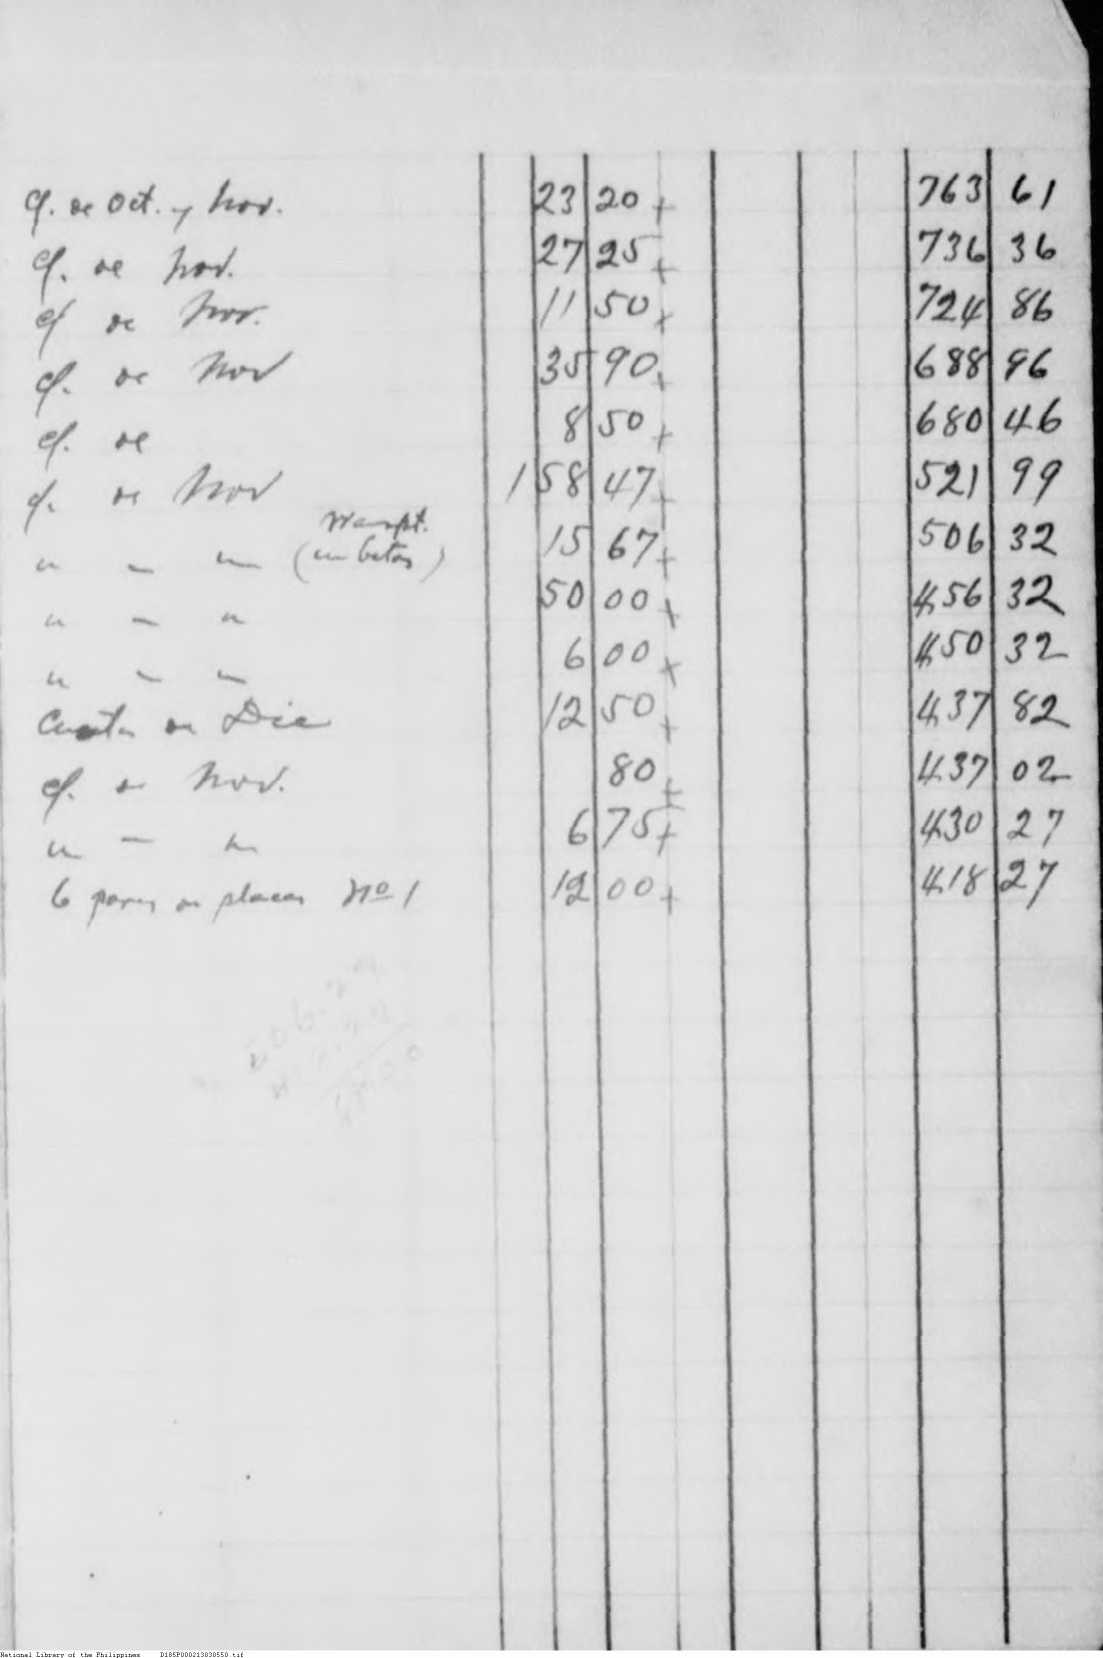 Cf. de Oct. y Nov. 23 20 + 763 61
Cf. de Nov. 27 25 + 736 36
Cf de Nov. 11 50 + 724 86
Cf. de Nov 35 90 + 688 96
Cf. de 8 50 + 680 46
Cf. de Nov 158 47 + 521 99
" " " 15 67 + 506 32
" " " 50 00 + 456 32
" " " 6 00 + 450 32
Cuota de Dic 12 50 + 437 82
Cf. de Nov. 80 + 437 02
" " " 6 75 + 430 27
6 pares de placas No 1 12 00 + 418 27
National Library of the Philippines D185P000213838550.tif